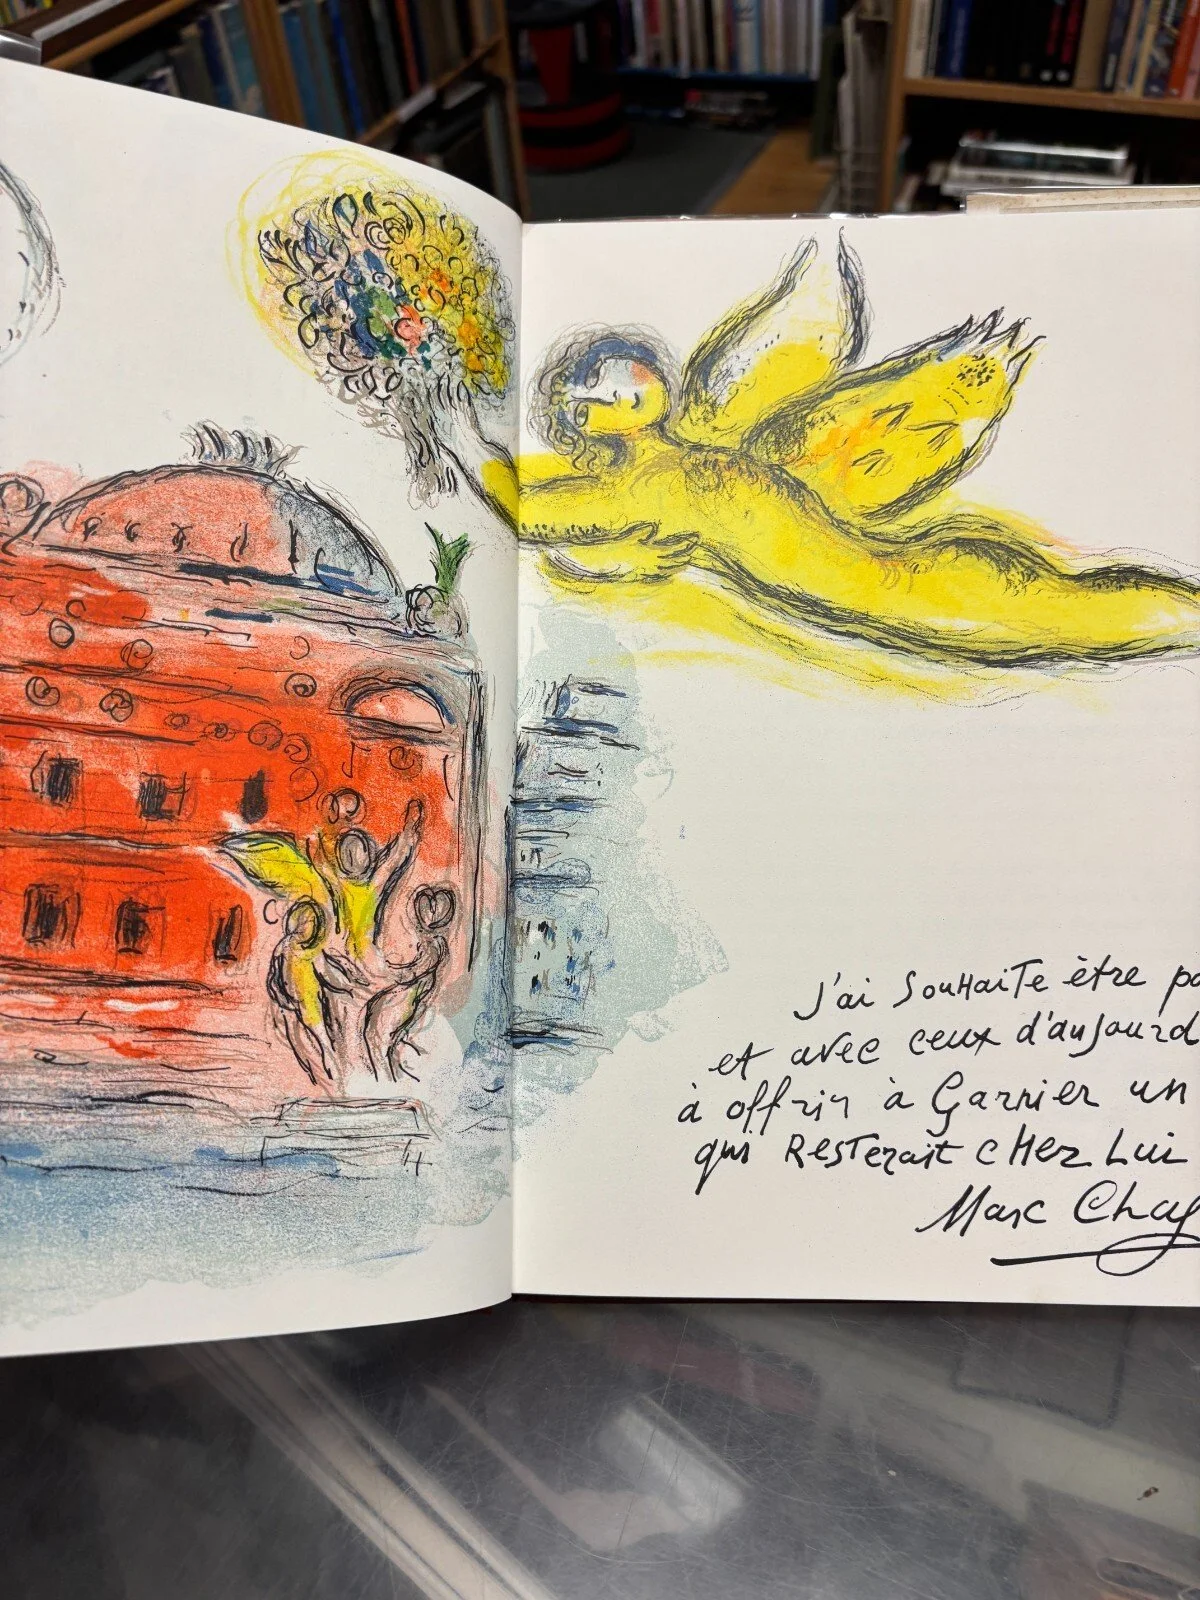 J'ai SouHaiTe être po
et avec ceux d'aujourd
à offrir à Garnier un
qui ResTerait cHez Lui
Marc Chag